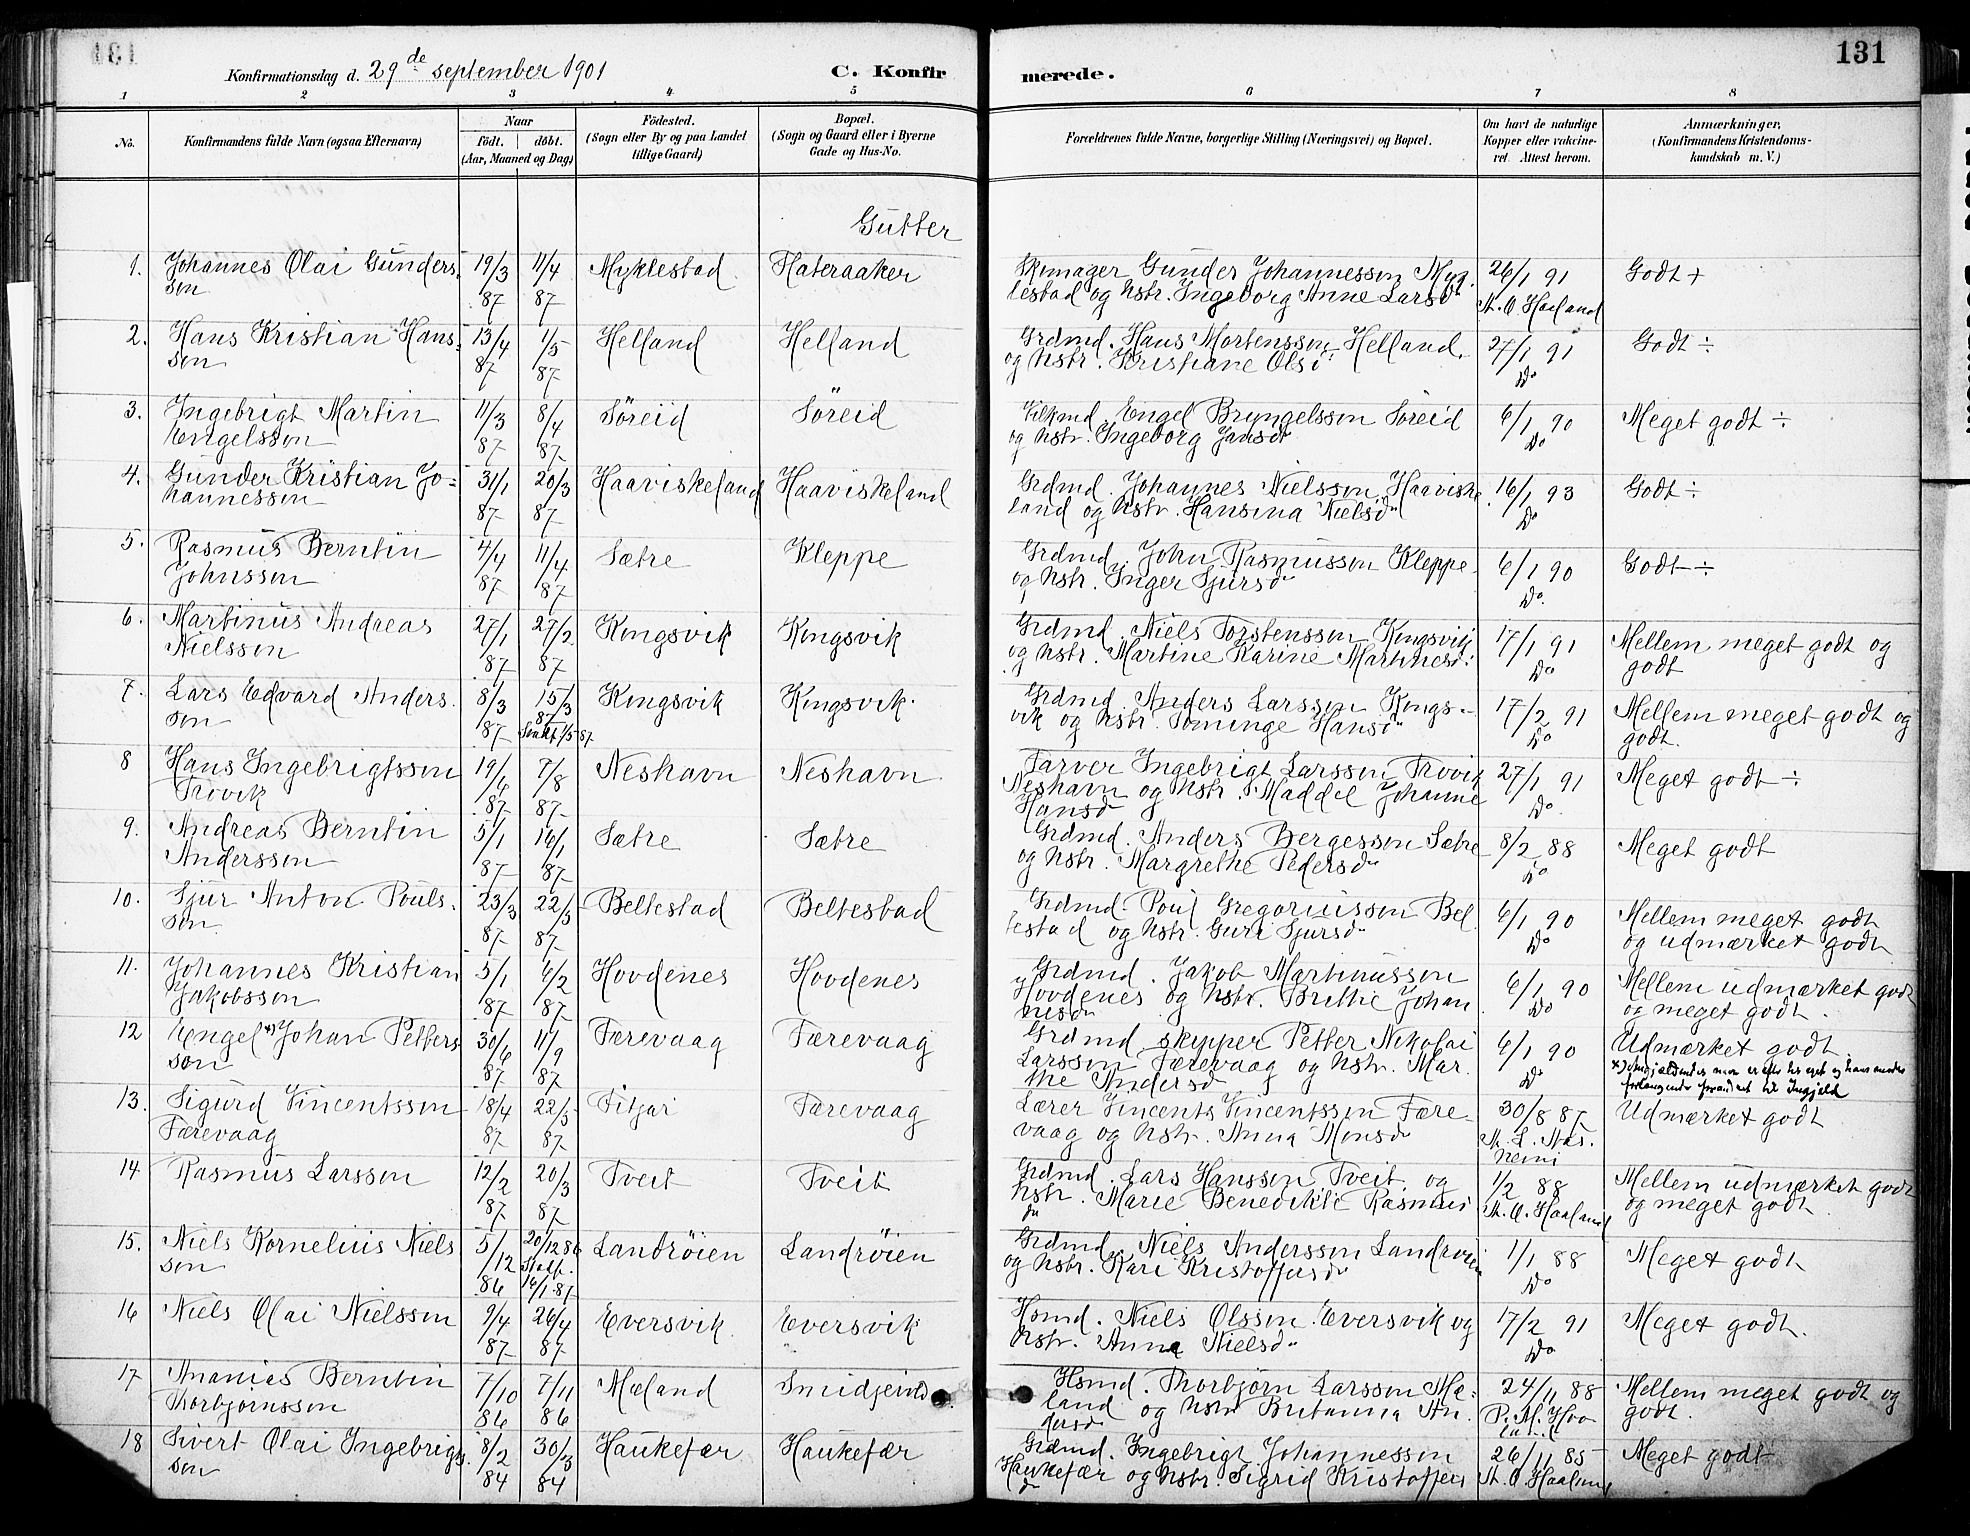 131
Konfirmationsdag d. 29de september 1901
C. Konfirmerede.
1 2 3 4 5 6 7 8
No. Konfirmandens fulde Navn (ogsaa Efternavn) Naar født. døbt. (Aar, Maaned og Dag) Fødested. (Sogn eller By og paa Landet tillige Gaard) Bopæl. (Sogn og Gaard eller i Byerne Gade og Hus-No. Forældrenes fulde Navne, borgerlige Stilling (Næringsvei) og Bopæl. Om havt de naturlige Kopper eller vaccineret. Attest herom. Anmærkninger. (Konfirmandens Kristendomskundskab m. V.)
Gutter
1. Johannes Olai Gunders- 19/3 11/4 Myklestad Hateraaker Skomager Gunder Johannesson Myk- 26/1 91 Godt +
son 87 87 lestad og Hstr. Ingeborg Anne Larsd. A. O. Haaland
2. Hans Kristian Hans- 13/4 1/5 Helland Helland Grdmd. Hans Mortensson Helland 27/1 91 Godt ÷
son 87 87 og Hstr. Kristiane Olsd. Do
3. Ingebrigt Martin 11/3 8/4 Søreid Søreid Engel Bryngelsson Søreid 6/1 90 Meget godt ÷
Engelsson 87 87 og Hstr. Ingeborg Jansd. Do
4. Gunder Kristian Jo- 31/1 20/3 Haaviskeland Haaviskeland Grdmd. Johannes Nielsson Haaviske- 16/1 93 Godt ÷
hannesson 87 87 land og Hstr. Hansina Nielsd. Do
5. Rasmus Berntin 4/4 11/4 Sætre Kleppe Grdmd. John Rasmusson Kleppe 6/1 90 Godt ÷
Johnsson 87 87 og Hstr. Inger Sjursd. Do
6. Martinus Andreas 27/1 27/2 Kongsvik Kongsvik Grdmd. Niels Torstensson Kongsvik 17/1 91 Mellem meget godt og
Nielsson 87 87 og Hstr. Martine Karine Martinesd. Do godt
7. Lars Edvard Anders- 8/3 15/3 Kongsvik Kongsvik. Grdmd. Anders Larsson Kongs- 17/2 91 Mellem meget godt og
son 87 87 1/5 87 vik og Hstr. Hansd. Do godt.
8 Hans Ingebrigtsson 19/6 7/8 Neshavn Neshavn Farver Ingebrigt Larsson Trovik 27/1 91 Meget godt ÷
Trovik 87 87 Neshavn og Hstr. Maddel Johanne Do
Hansd.
9. Andreas Berntin 5/1 16/1 Sætre Sætre Grdmd. Anders Bergesson Sætre 8/2 88 Meget godt
Andersson 87 87 og Hstr. Margrethe Pedersd. Do
10. Sjur Anton Pouls- 23/3 22/5 Beltestad Beltestad Grdmd. Poul Gregoriusson Bel- 6/1 90 Mellem meget godt
son 87 87 testad og Hstr. Guri Sjursd. Do og udmærket godt
11. Johannes Kristian 5/1 6/2 Hovdenes Hovdenes Grdmd. Jakob Martinusson 6/1 90 Mellem udmærket godt
Jakobsson 87 87 Hovdenes og Hstr. Brithe Johan- Do og meget godt.
nesd.
12 Engel *) Johan Petters- 30/6 11/9 Færevaag Færevaag Grdmd skipper Petter Nikolai 6/1 90 Udmærket godt.
son 87 87 Larsson Færevaag og Hstr. Mar- Do
the Andersd. forandret til Ingjeld
13. Sigurd Vincentsson 18/4 22/5 Fitjar Færevaag Lærer Vincents Vincentsson Fære- 30/8 87 Udmærket godt
Færevaag 87 87 vaag og Hstr. Anna Monsd.
14 Rasmus Larsson 12/2 20/3 Tveit Tveit Grdmd. Lars Hansson Tveit og 1/2 88 Mellem udmærket godt
87 87 Hstr. Marie Benedikte Rasmus- A. O. Haaland og meget godt
d.
15. Niels Kornelius Niels- 5/12 20/12 86 Landrøien Landrøien Grdmd. Niels Andersson Landrøien 1/1 88 Meget godt
son 86 Stadf. 16/1 87 og Hstr. Kari Kristoffersd. Do
16 Niels Olai Nielsson 9/4 26/4 Eversvik Eversvik Hsmd. Niels Olsson Eversvik og 17/2 91 Meget godt.
87 87 Hstr. Anna Nielsd. Do
17 Ananias Berntin 7/10 7/11 Mæland Smidjeind Hsmd. Thorbjørn Larsson Mæ- 24/11 88 Mellem meget godt og
Thorbjørnsson 86 86 land og Hstr. Britanna An- P. M. godt.
dersd.
18 Sivert Olai Ingebrigts- 8/2 30/3 Haukefær Haukefær Grdmd. Ingebrigt Johannesson 26/11 85 Meget godt
son 84 84 Haukefær og Hstr. Sigrid Kristoffers- A. O. Haaland
d.